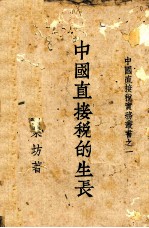 中國直接稅實務叢書之一
中國直接稅的生長
坊著